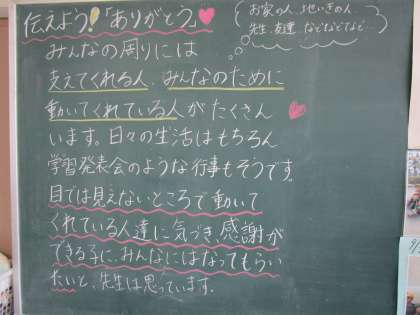 伝えよう!「ありがとう」
お家の人、地いきの人
先生、友達、などなどなど…
みんなの周りには
支えてくれる人、みんなのために
動いてくれている人がたくさん
います。日々の生活はもちろん
学習発表会のような行事もそうです。
目では見えないところで動いて
くれている人達に気づき、感謝が
できる子に、みんなにはなってもらい
たいと、先生は思っています。